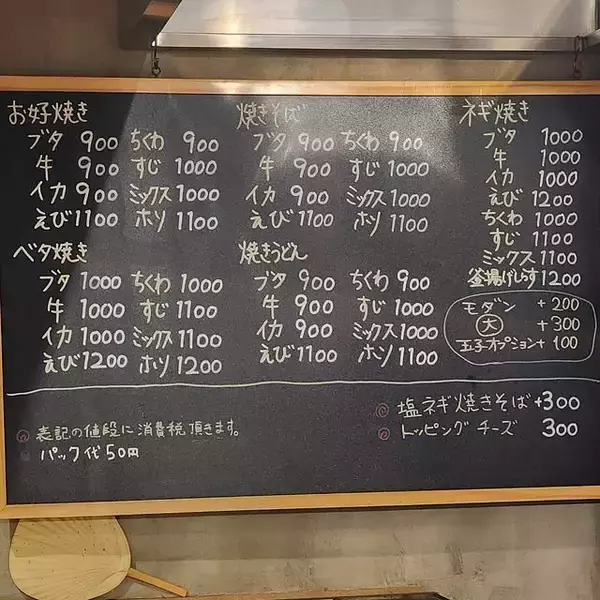 お好焼き
ブタ 900 ちくわ 900
牛 900 すじ 1000
イカ 900 ミックス 1000
えび 1100 ホソ 1100
ベタ焼き
ブタ 1000 ちくわ 1000
牛 1000 すじ 1100
イカ 1000 ミックス 1100
えび 1200 ホソ 1200
焼きそば
ブタ 900 ちくわ 900
牛 900 すじ 1000
イカ 900 ミックス 1000
えび 1100 ホソ 1100
焼きうどん
ブタ 900 ちくわ 900
牛 900 すじ 1000
イカ 900 ミックス 1000
えび 1100 ホソ 1100
ネギ焼き
ブタ 1000
牛 1000
イカ 1000
えび 1200
ちくわ 1000
すじ 1100
ミックス 1100
釜揚げしらす 1200
モダン +200
大 +300
玉子オプション +100
塩ネギ焼きそば +300
トッピングチーズ 300
表記の値段に消費税頂きます。
パック代50円